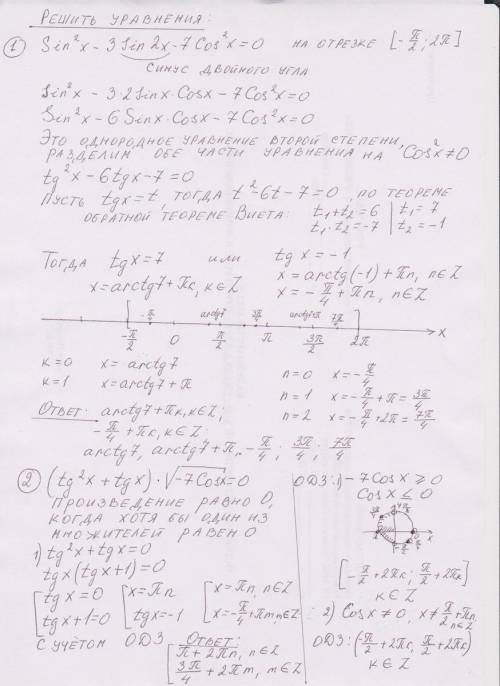 РЕШИТЬ УРАВНЕНИЯ:
① Sin²x - 3 Sin 2x - 7 Cos²x = 0 НА ОТРЕЗКЕ [-π/2; 2π]
СИНУС ДВОЙНОГО УГЛА
Sin²x - 3·2Sinx·Cosx - 7Cos²x = 0
Sin²x - 6Sinx·Cosx - 7Cos²x = 0
ЭТО ОДНОРОДНОЕ УРАВНЕНИЕ ВТОРОЙ СТЕПЕНИ,
РАЗДЕЛИМ ОБЕ ЧАСТИ УРАВНЕНИЯ НА Cos²x ≠ 0
tg²x - 6tgx - 7 = 0
ПУСТЬ tgx = t, ТОГДА t² - 6t - 7 = 0, ПО ТЕОРЕМЕ
ОБРАТНОЙ ТЕОРЕМЕ ВИЕТА: t₁ + t₂ = 6 | t₁ = 7
t₁ · t₂ = -7 | t₂ = -1
ТОГДА tgx = 7 ИЛИ tgx = -1
x = arctg7 + πk, k∈Z x = arctg(-1) + πn, n∈Z
x = -π/4 + πn, n∈Z
-π/4 arctg7 3π/4 arctg7+π 7π/4
-π/2 0 π/2 π 3π/2 2π x
k = 0 x = arctg7 n = 0 x = -π/4
k = 1 x = arctg7 + π n = 1 x = -π/4 + π = 3π/4
n = 2 x = -π/4 + 2π = 7π/4
ОТВЕТ: arctg7 + πk, k∈Z;
-π/4 + πk, k∈Z;
arctg7, arctg7 + π, -π/4; 3π/4; 7π/4
② (tg²x + tgx) · √(-7Cosx) = 0
ПРОИЗВЕДЕНИЕ РАВНО 0,
КОГДА ХОТЯ БЫ ОДИН ИЗ
МНОЖИТЕЛЕЙ РАВЕН 0
1) tg²x + tgx = 0
tgx(tgx + 1) = 0
[tgx = 0 [x = πn [x = πn, n∈Z
[tgx + 1 = 0 [tgx = -1 [x = -π/4 + πm, m∈Z
С УЧЁТОМ ОДЗ ОТВЕТ:
[π + 2πn, n∈Z
[3π/4 + 2πm, m∈Z
ОДЗ: 1) -7Cosx ≥ 0
Cosx ≤ 0
x
[-π/2 + 2πk; π/2 + 2πk]
k∈Z
2) Cosx ≠ 0, x ≠ π/2 + πn, n∈Z
ОДЗ: (-π/2 + 2πk, π/2 + 2πk)
k∈Z